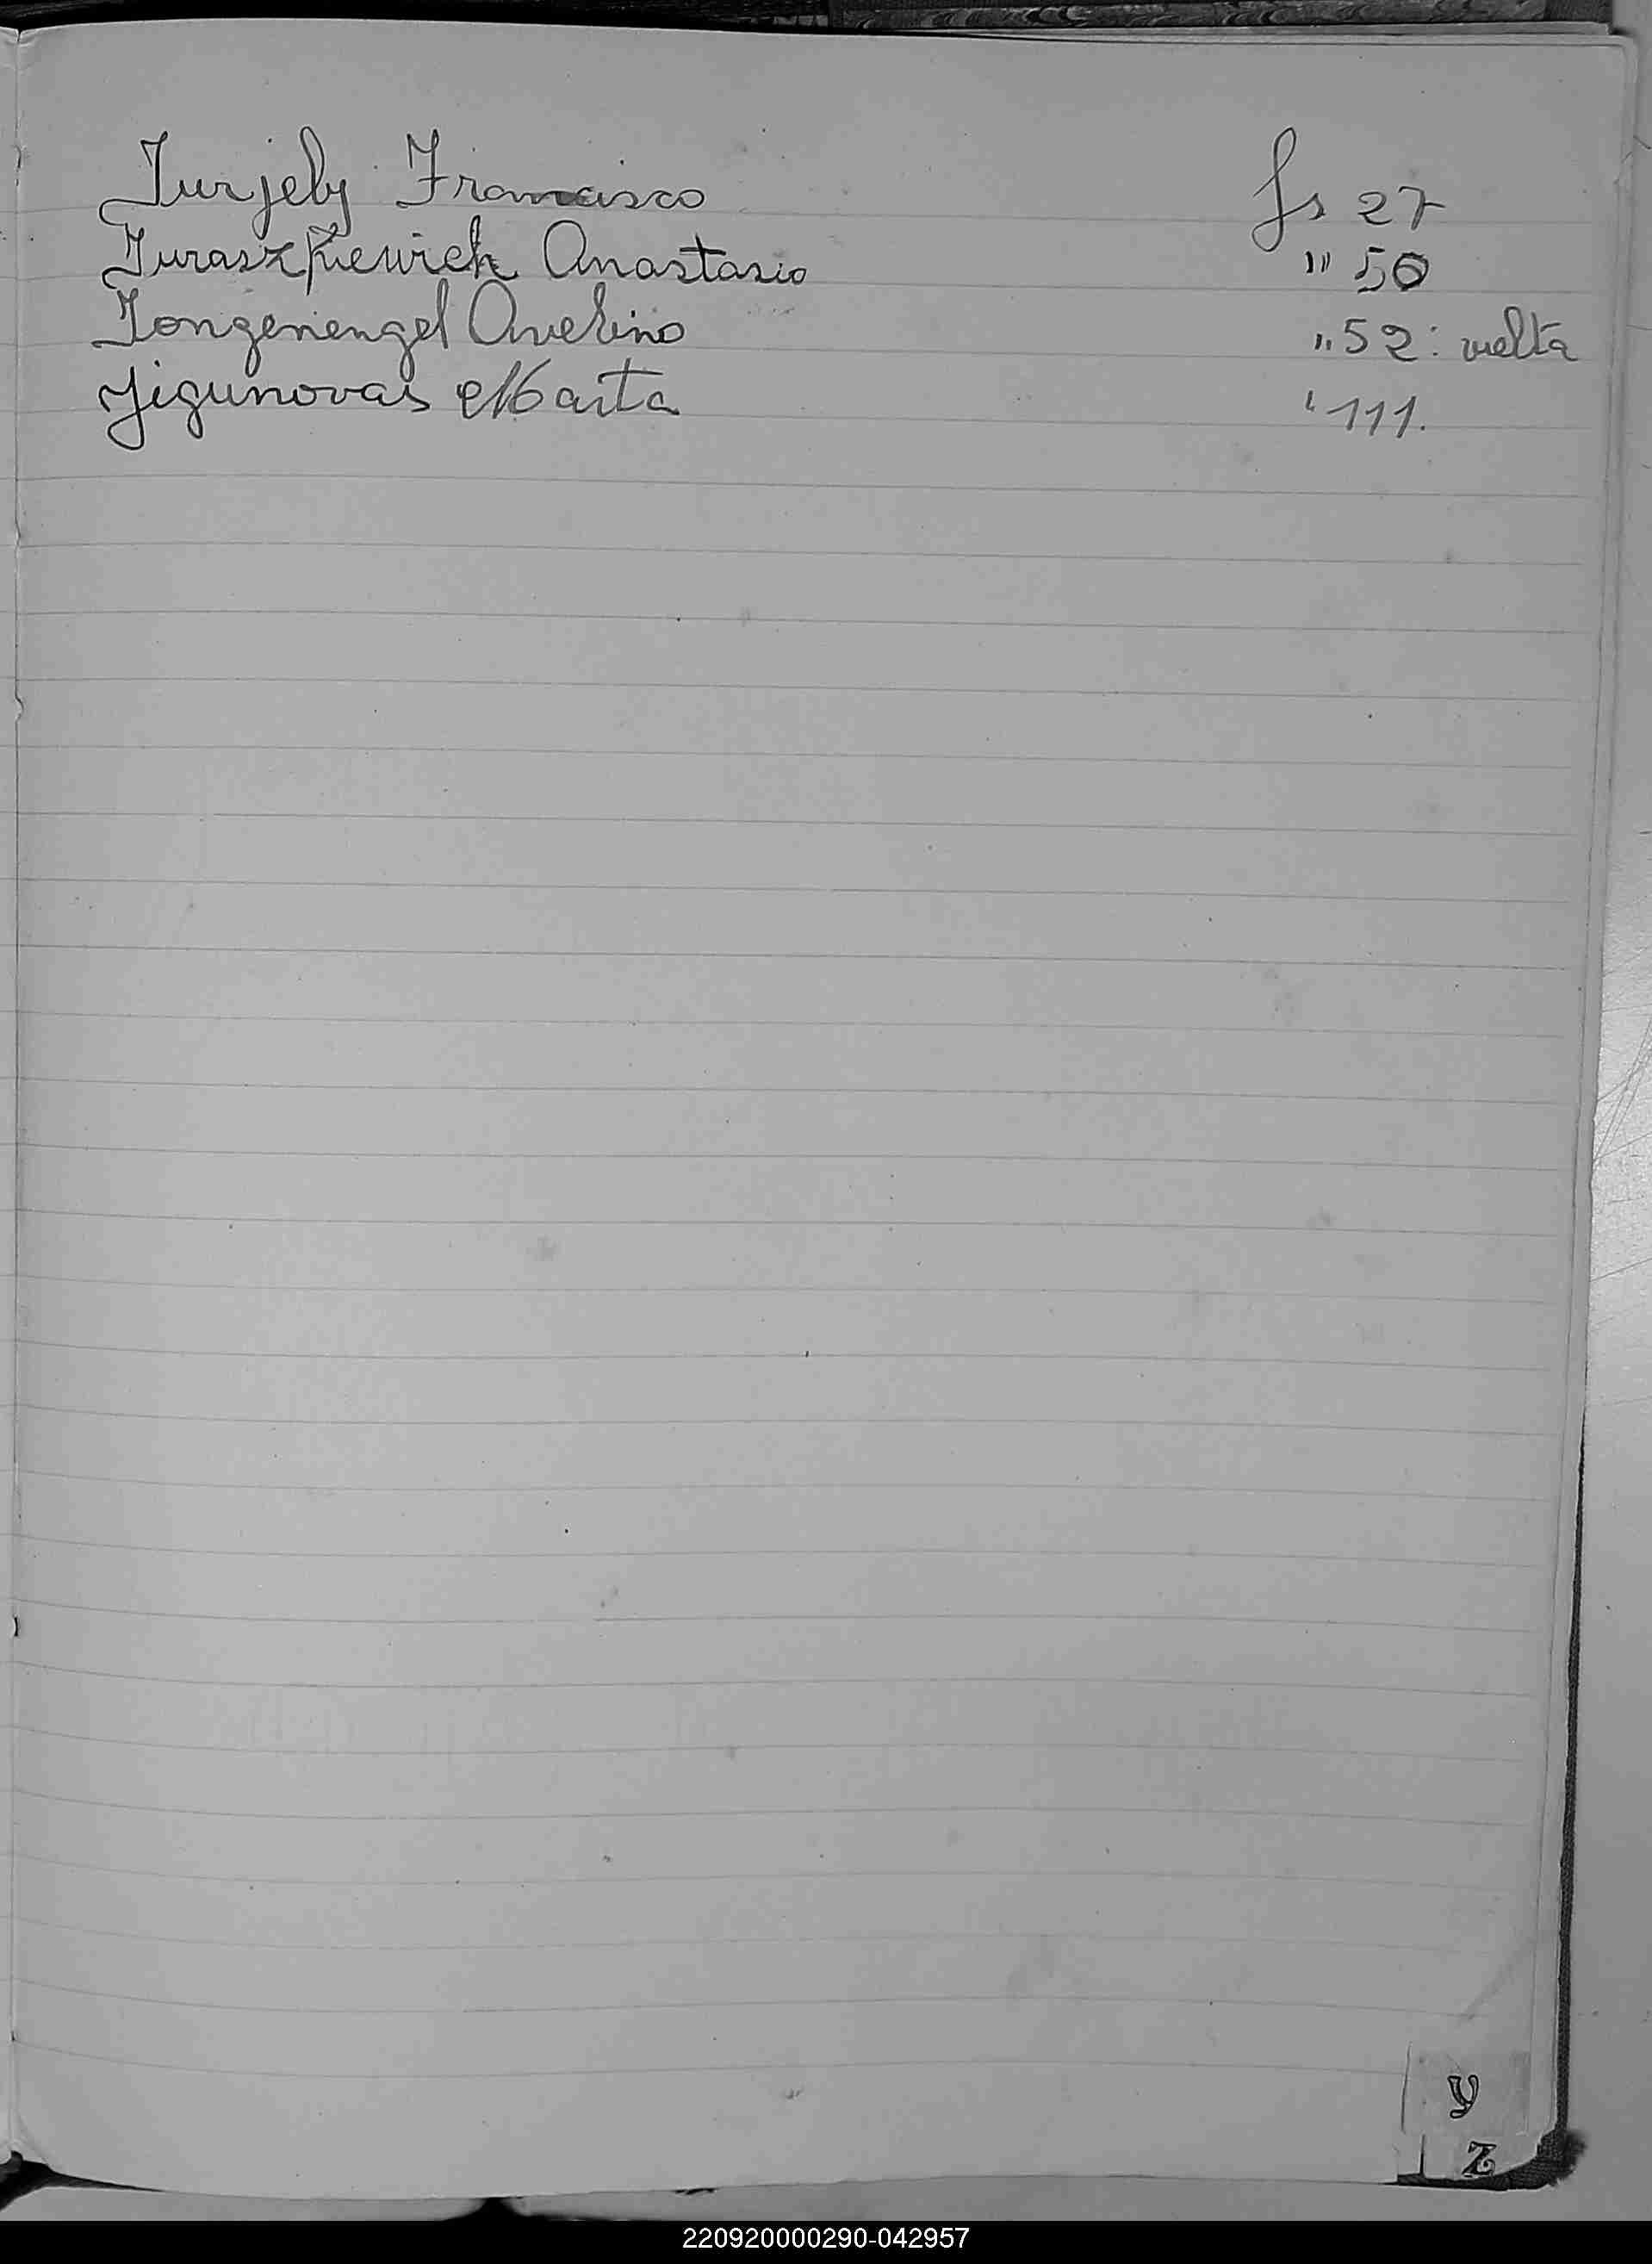 Jurjely Francisco fs 27
Juraszkiewich Anastasio " 50
Jongenengel Avelino " 52: vuelta
Jigunovas Marta " 111.
Y
Z
220920000290-042957